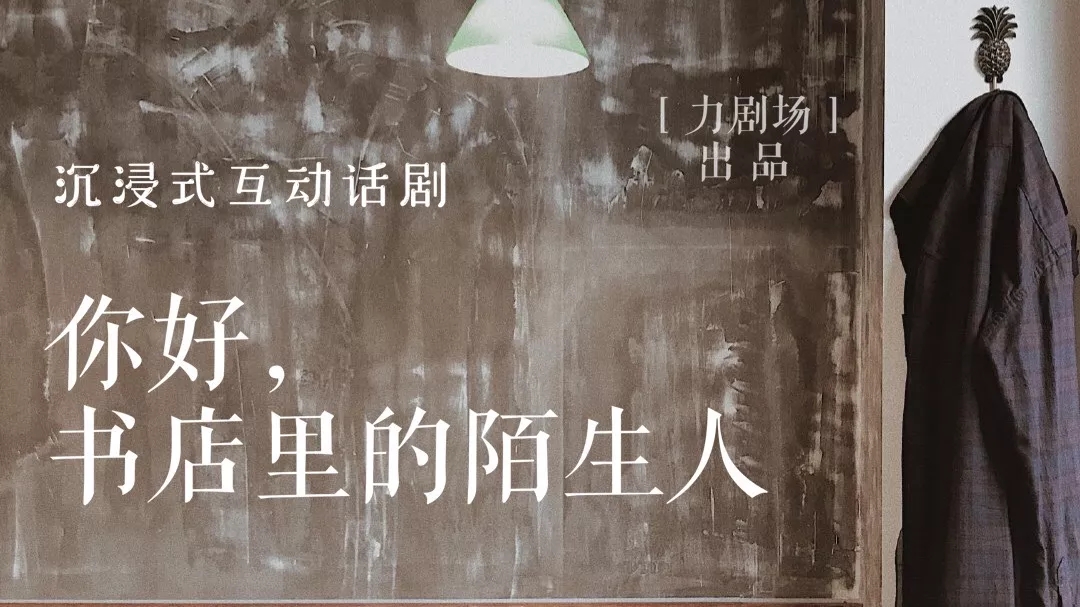 [ 力剧场 ]
出品
沉浸式互动话剧
你好，
书店里的陌生人